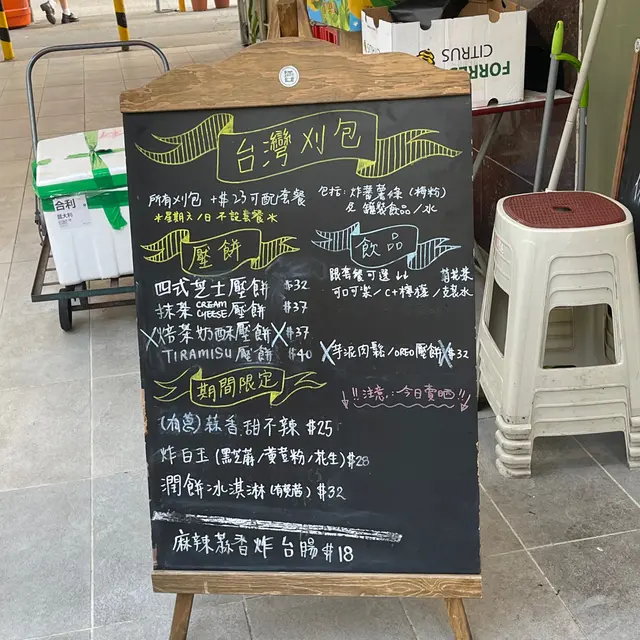 台灣刈包
所有刈包 +$23可配套餐
*星期六/日不設套餐*
包括: 炸番薯條 (梅粉)
及 罐裝飲品/水
壓餅
四式芝士壓餅 $32
抹茶 CREAM CHEESE 壓餅 $37
X焙茶奶酥壓餅X $37
TIRAMISU 壓餅 $40
飲品
跟套餐可選
可口可樂/C+檸檬/支裝水
X芋泥肉鬆/OREO壓餅X $32
!!注意:今日賣晒!!
期間限定
(有蔥) 蒜香甜不辣 $25
炸白玉 (黑芝麻/黃荳粉/花生) $28
潤餅冰淇淋 (有芫茜) $32
麻辣蒜香炸台腸 $18
合利
意大利
FORRES
CITRUS